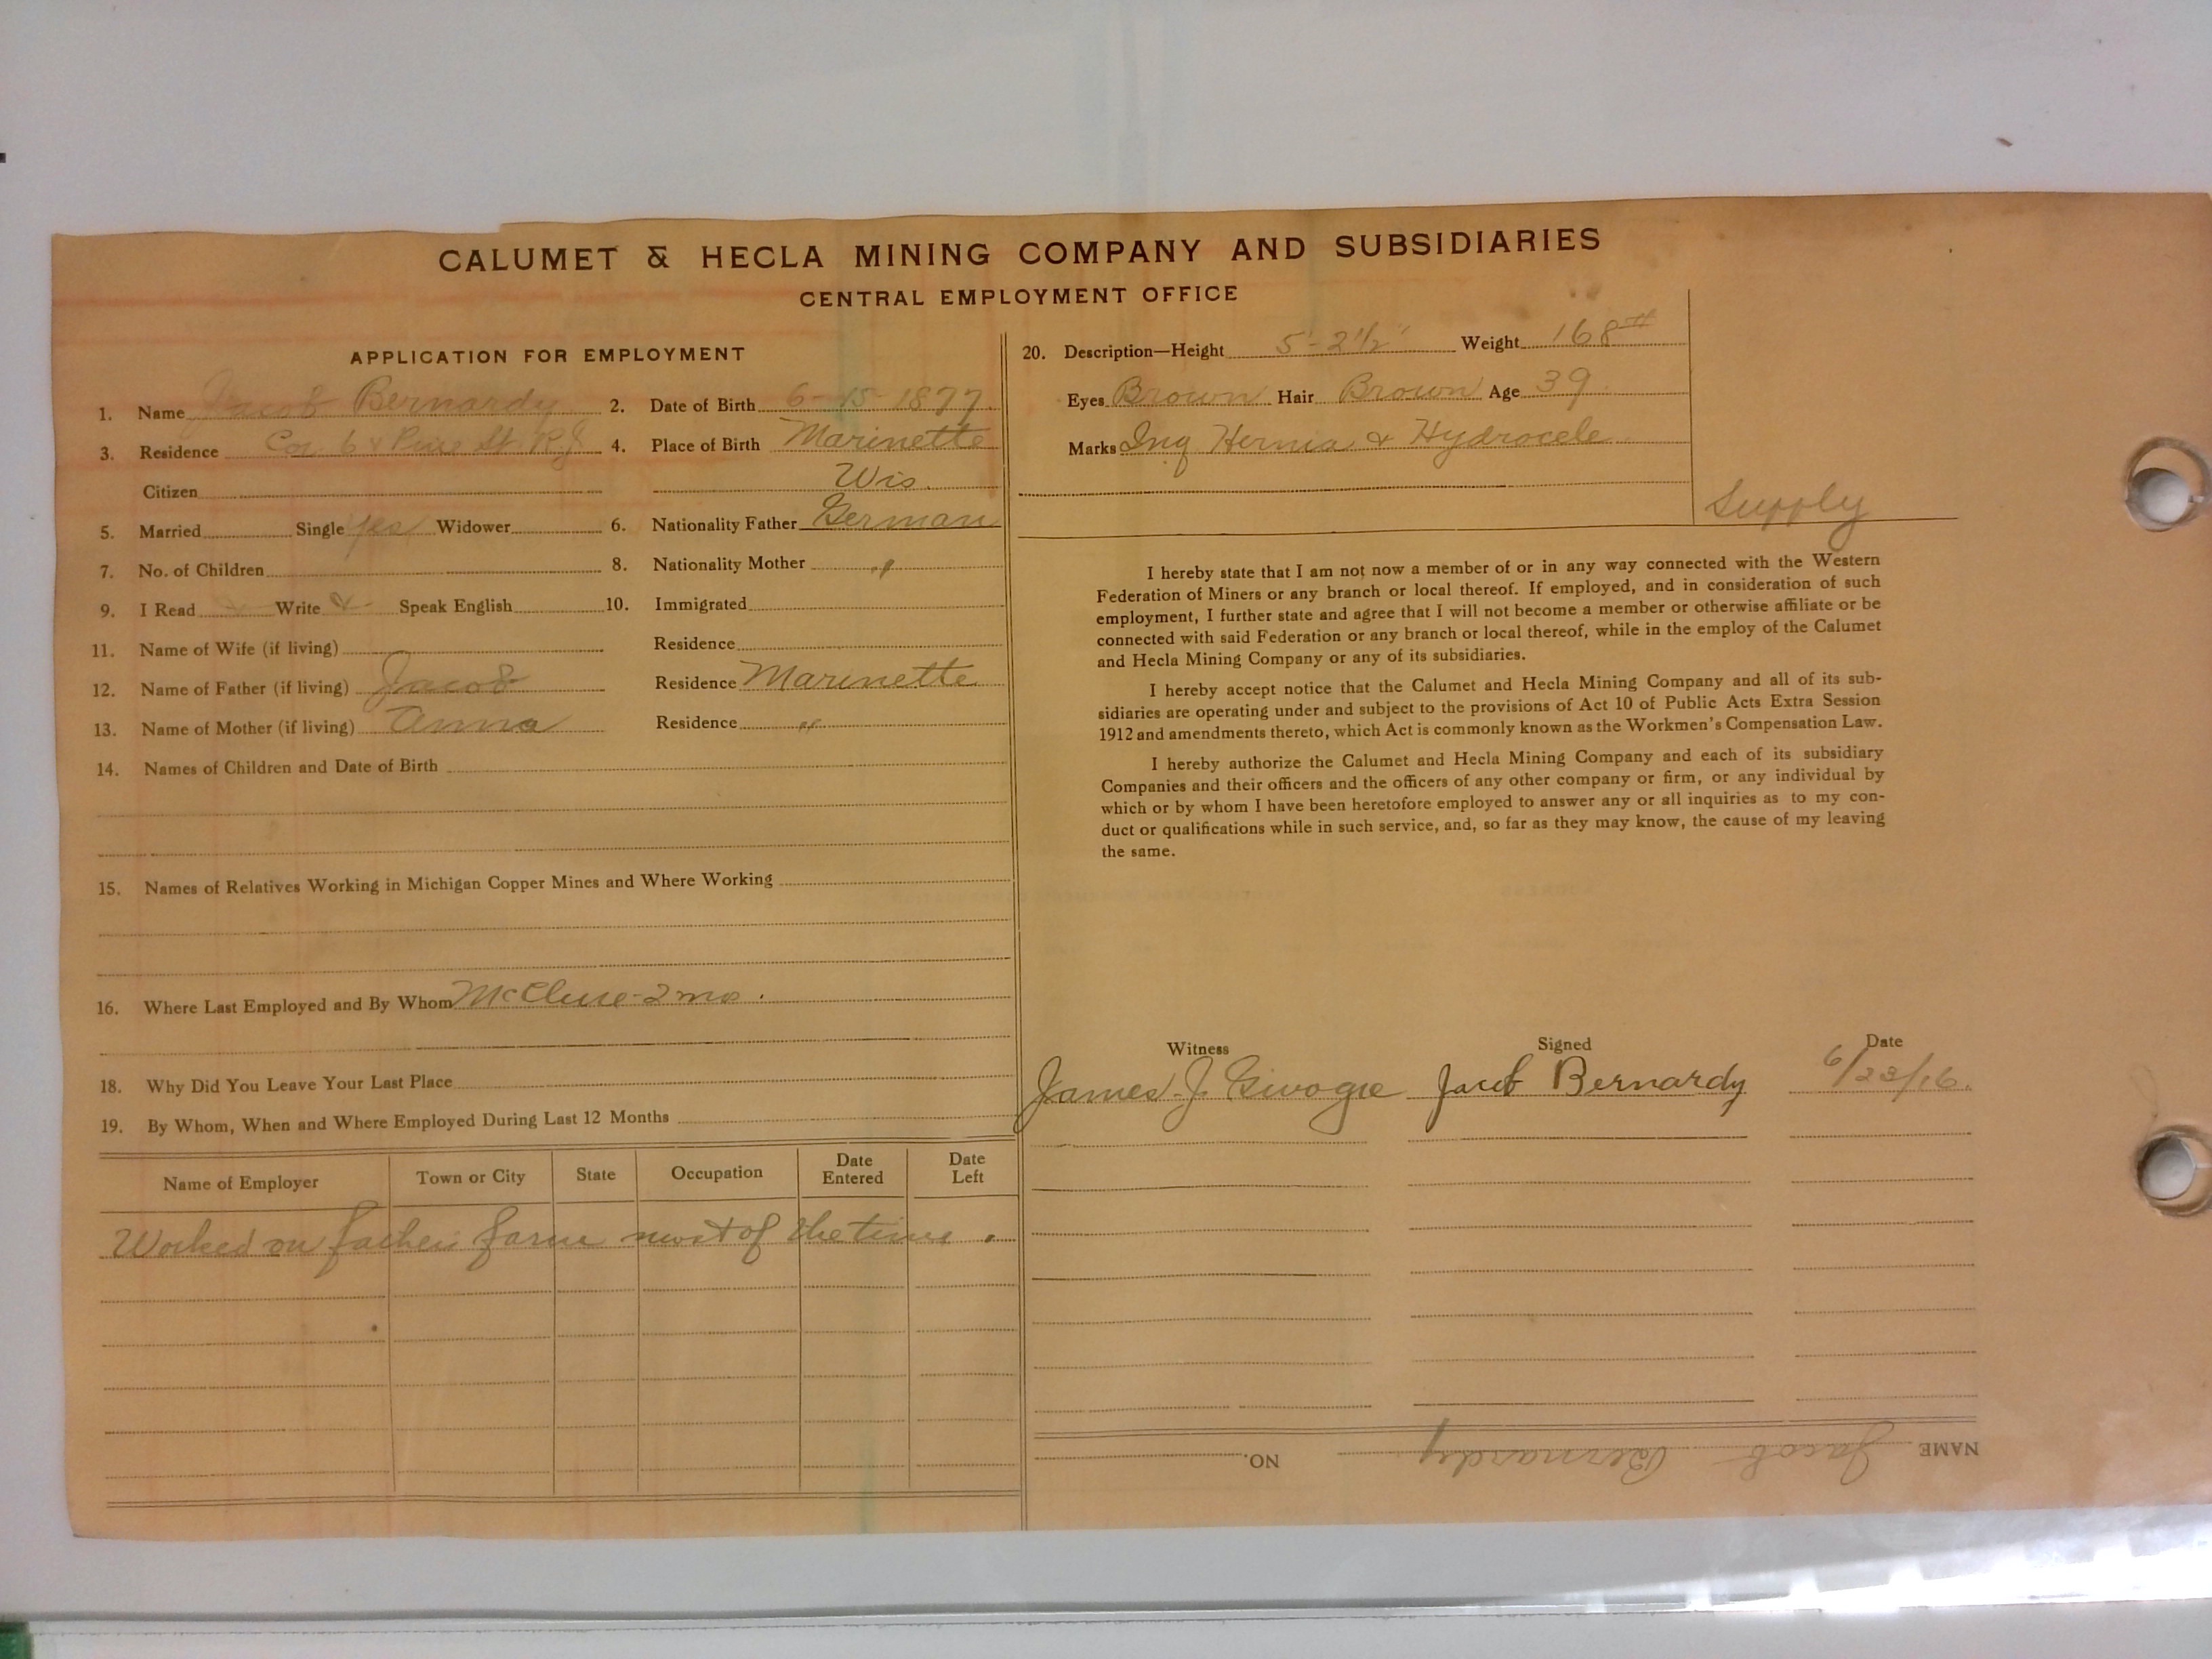 CALUMET & HECLA MINING COMPANY AND SUBSIDIARIES
CENTRAL EMPLOYMENT OFFICE
APPLICATION FOR EMPLOYMENT
1. Name Jacob Bernardy 2. Date of Birth 6-15-1877
3. Residence Cor 6 & Pine St 4. Place of Birth Marinette
Citizen Wis.
5. Married Single yes Widower 6. Nationality Father German
7. No. of Children 8. Nationality Mother "
9. I Read Write Speak English 10. Immigrated
11. Name of Wife (if living) Residence
12. Name of Father (if living) Jacob Residence Marinette
13. Name of Mother (if living) Anna Residence "
14. Names of Children and Date of Birth
15. Names of Relatives Working in Michigan Copper Mines and Where Working
16. Where Last Employed and By Whom McClure-2 mo.
18. Why Did You Leave Your Last Place
19. By Whom, When and Where Employed During Last 12 Months
Name of Employer Town or City State Occupation Date Entered Date Left
Worked on fathers farm most of the time.
20. Description—Height 5-2½ Weight 168#
Eyes Brown Hair Brown Age 39
Marks Ing Hernia & Hydrocele
Supply
I hereby state that I am not now a member of or in any way connected with the Western
Federation of Miners or any branch or local thereof. If employed, and in consideration of such
employment, I further state and agree that I will not become a member or otherwise affiliate or be
connected with said Federation or any branch or local thereof, while in the employ of the Calumet
and Hecla Mining Company or any of its subsidiaries.
I hereby accept notice that the Calumet and Hecla Mining Company and all of its sub-
sidiaries are operating under and subject to the provisions of Act 10 of Public Acts Extra Session
1912 and amendments thereto, which Act is commonly known as the Workmen's Compensation Law.
I hereby authorize the Calumet and Hecla Mining Company and each of its subsidiary
Companies and their officers and the officers of any other company or firm, or any individual by
which or by whom I have been heretofore employed to answer any or all inquiries as to my con-
duct or qualifications while in such service, and, so far as they may know, the cause of my leaving
the same.
Witness Signed Date
James J. Jacob Bernardy 6/23/16.
NAME Jacob Bernardy NO.